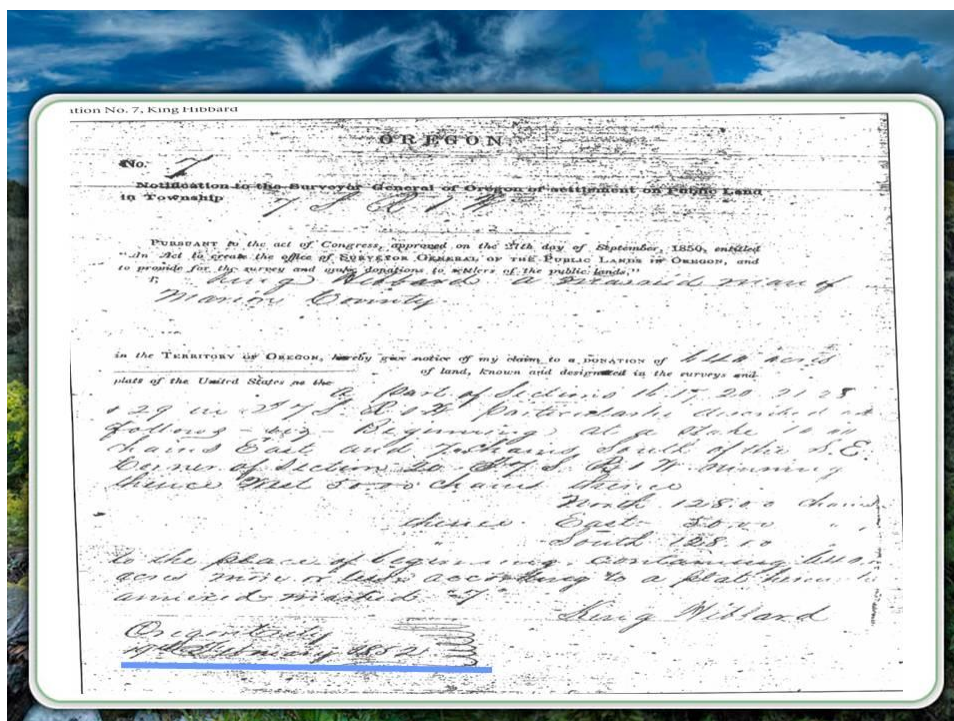 ition No. 7, King Hibbard
OREGON.
No. 7
Notification to the Surveyor General of Oregon of settlement on Public Land
in Township 7 S R 1 W
PURSUANT to the act of Congress, approved on the 27th day of September, 1850, entitled
"An Act to create the office of SURVEYOR GENERAL OF THE PUBLIC LANDS IN OREGON, and
to provide for the survey and make donations to settlers of the public lands,"
I, King Hibbard a married man of
Marion County
in the TERRITORY OF OREGON, hereby give notice of my claim to a DONATION of acres
of land, known and designated in the surveys and
plats of the United States as the
A part of Sections 16. 17. 20. 21. 28
& 29 in 7 S. R 1 W Particularly described as
follows - viz - Beginning at a stake
chains East and 7 chains South of the S.E.
Corner of Section 20 T 7 S. R 1 W running
thence West 50.00 chains thence
North 128.00 chains
thence East 50.00 " "
" South 128.00
to the place of beginning, containing
acres more or less according to a plat hereunto
annexed marked "7"
King Hibbard
Oregon City
February 1852